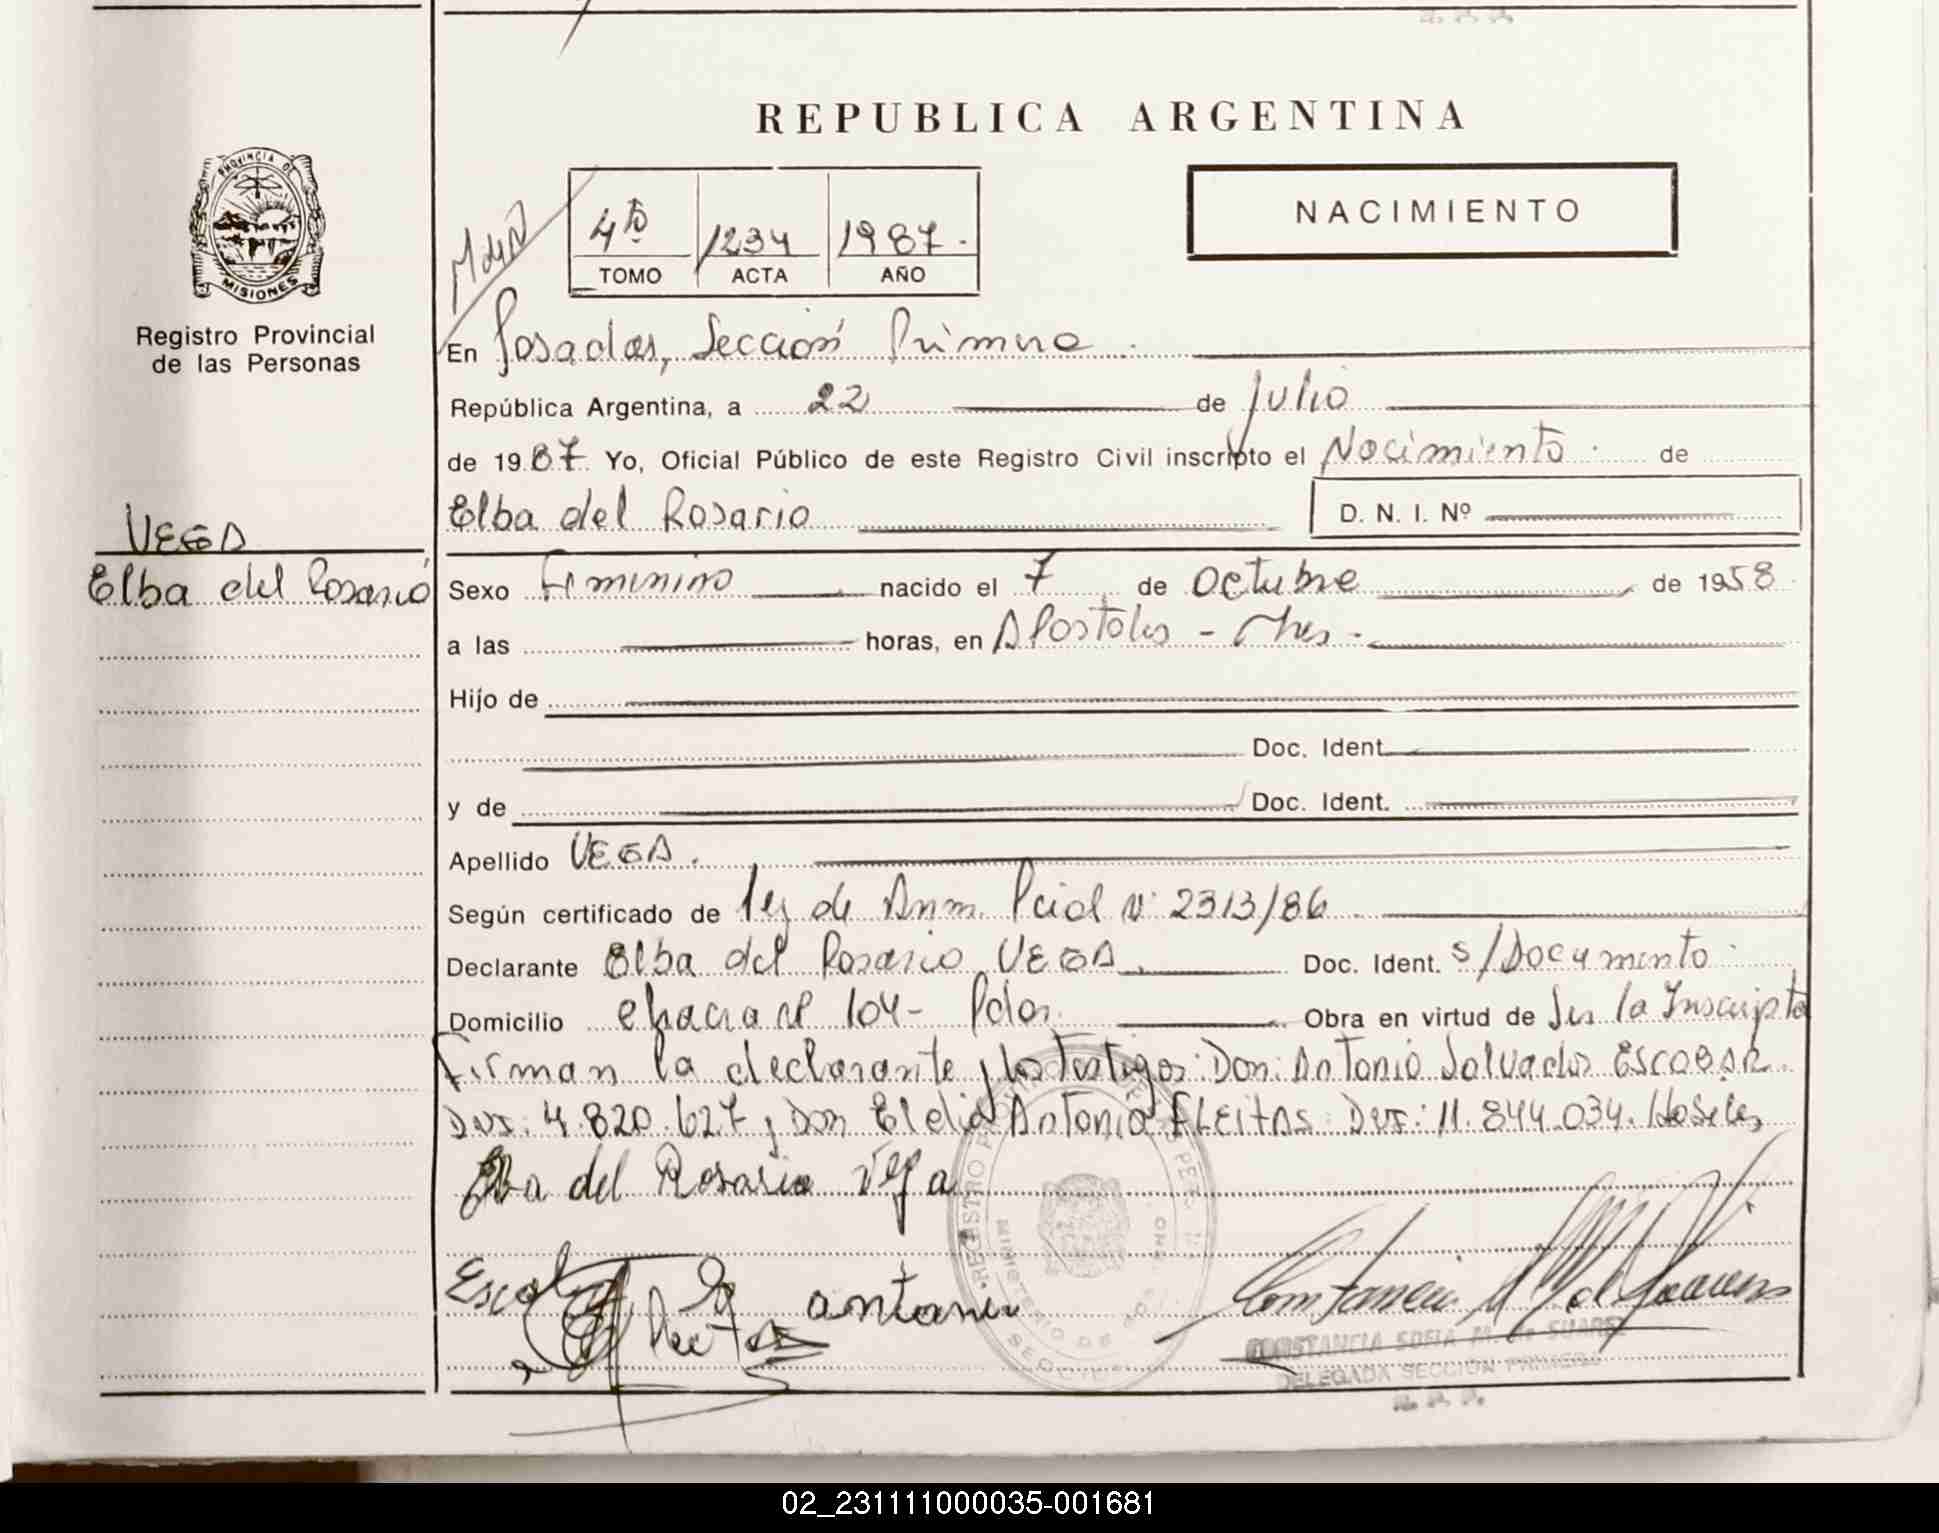 REPUBLICA ARGENTINA
PROVINCIA DE
MISIONES
Registro Provincial
de las Personas
4to 1234 1987.
TOMO ACTA AÑO
NACIMIENTO
En Posadas, Sección Primera
República Argentina, a 22 de Julio
de 1987 Yo, Oficial Público de este Registro Civil inscripto el Nacimiento de
Elba del Rosario D. N. I. Nº
VEGA
Elba del Rosario
Sexo Femenino nacido el 7 de Octubre de 1958
a las horas, en Apostoles - Mnes.
Hijo de
Doc. Ident.
y de Doc. Ident.
Apellido VEGA.
Según certificado de ley de Pcial Nº 2313/86
Declarante Elba del Rosario VEGA. Doc. Ident. s/Documento
Domicilio chacra Nº 104- Pdas. Obra en virtud de Ser la Inscripta
Firman la declarante y los testigos: Don: Antonio Salvador ESCOBAR
DNI: 4.820.627 y Don Elelio Antonio FLEITAS: DNI: 11.844.034.
Elba del Rosario Vega
antonio
CONSTANCIA SOFIA M. de SUAREZ
DELEGADA SECCION PRIMERA
02_231111000035-001681